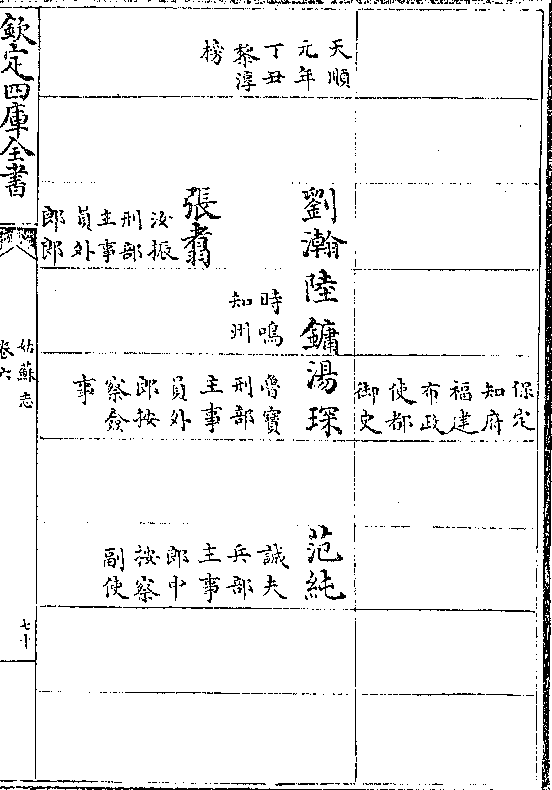 保定
知府
福建
布政
使都
御史
天順
元年
丁丑
黎淳
榜
劉瀚
張翥
汝振
刑部
主事
員外
郎郎
陸鏞
時鳴
知州
湯琛
魯寶
刑部
主事
員外
郎按
察僉
事
范純
誠夫
兵部
主事
郎中
按察
副使
欽定四庫全書
姑蘇志
卷六
七十